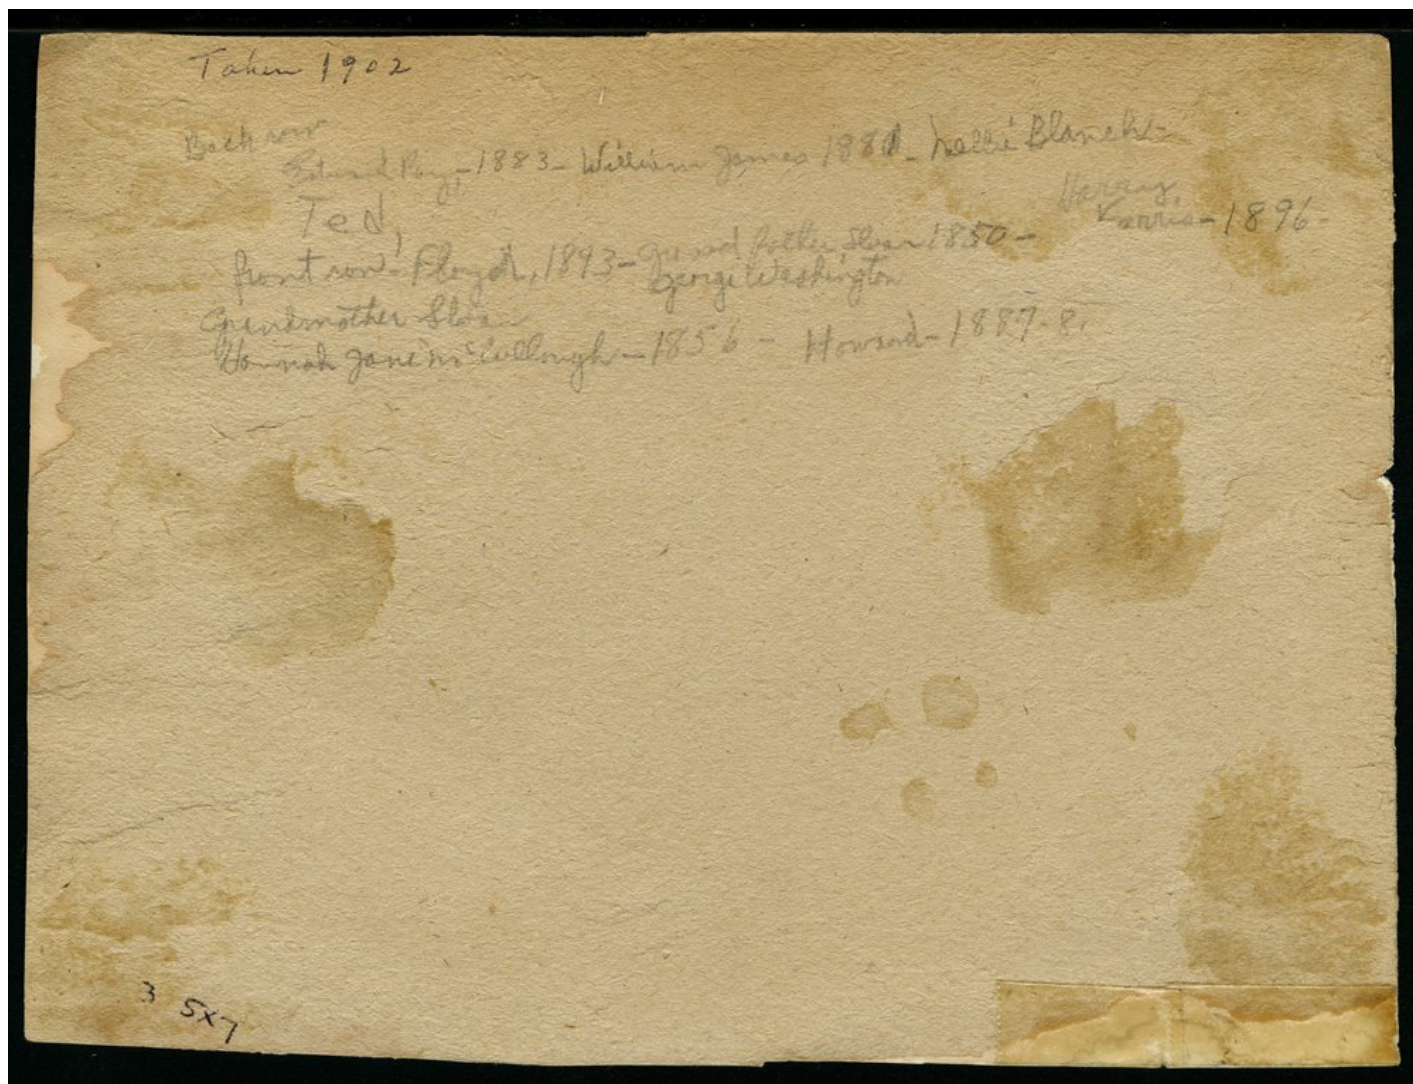 Taken 1902
Back row
Edward Ray, - 1883 - William James 1881 - Nellie Blanch -
Ted,
Harry
- 1896 -
front row - Floyd, 1893 - Grand father Sloan 1850 -
George Washington
Grandmother Sloan
Hannah Jane McCullough - 1856 - Howard - 1887. 8.
3 5x7